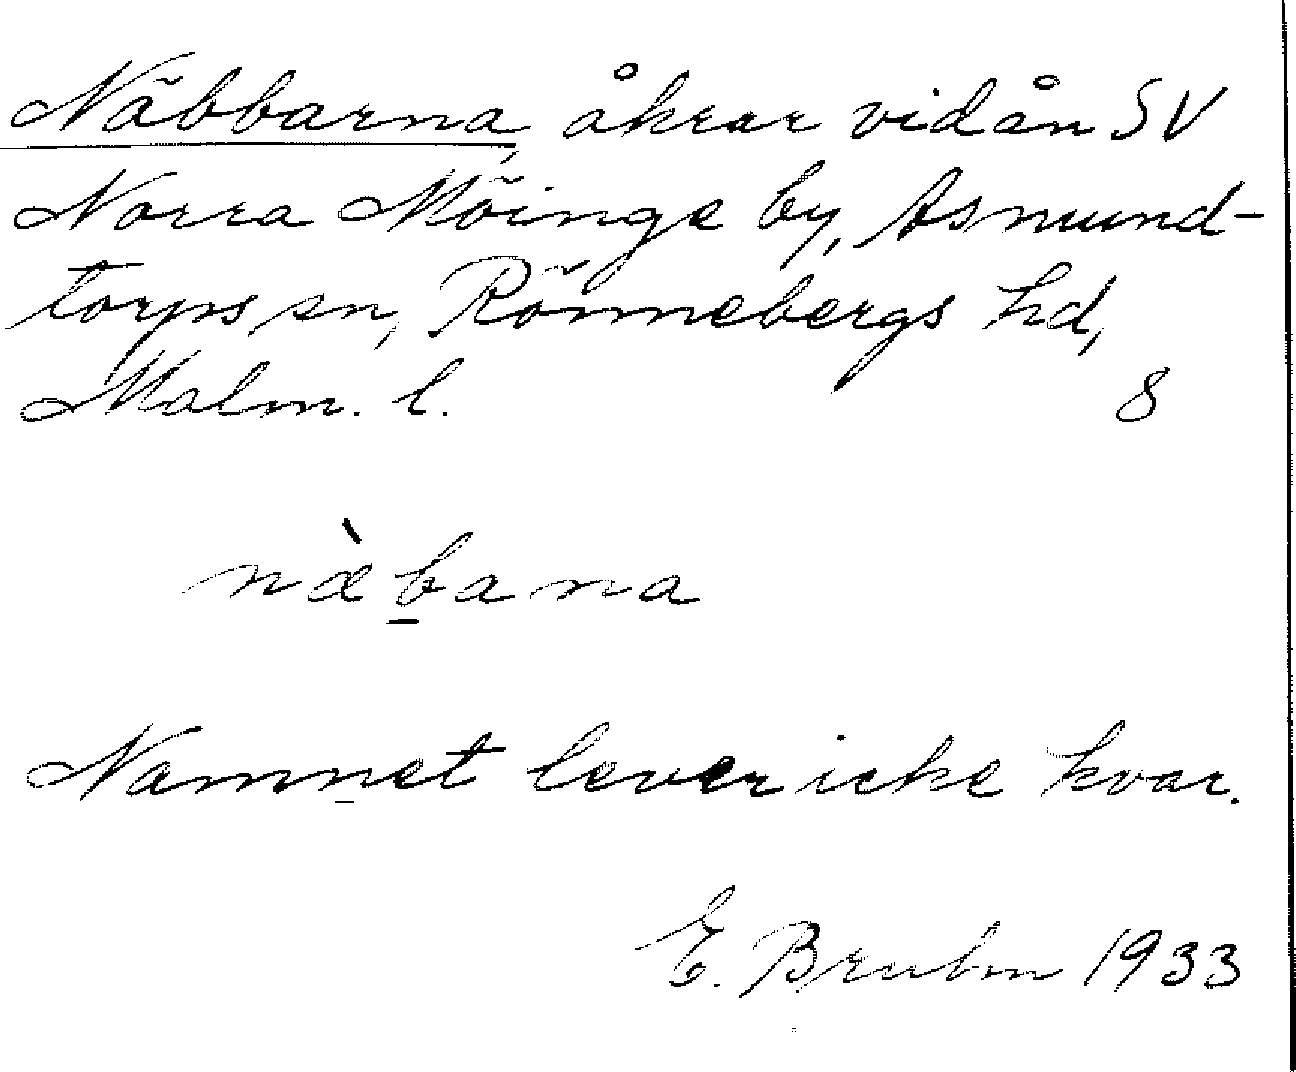 Näbbarna, åkrar vid ån SV
Norra Möinge by, Asmund-
torps sn, Rönnebergs hd,
Malm. l. 8
næ̀b̲ana
Namnet lever icke kvar.
E. Bruhn 1933